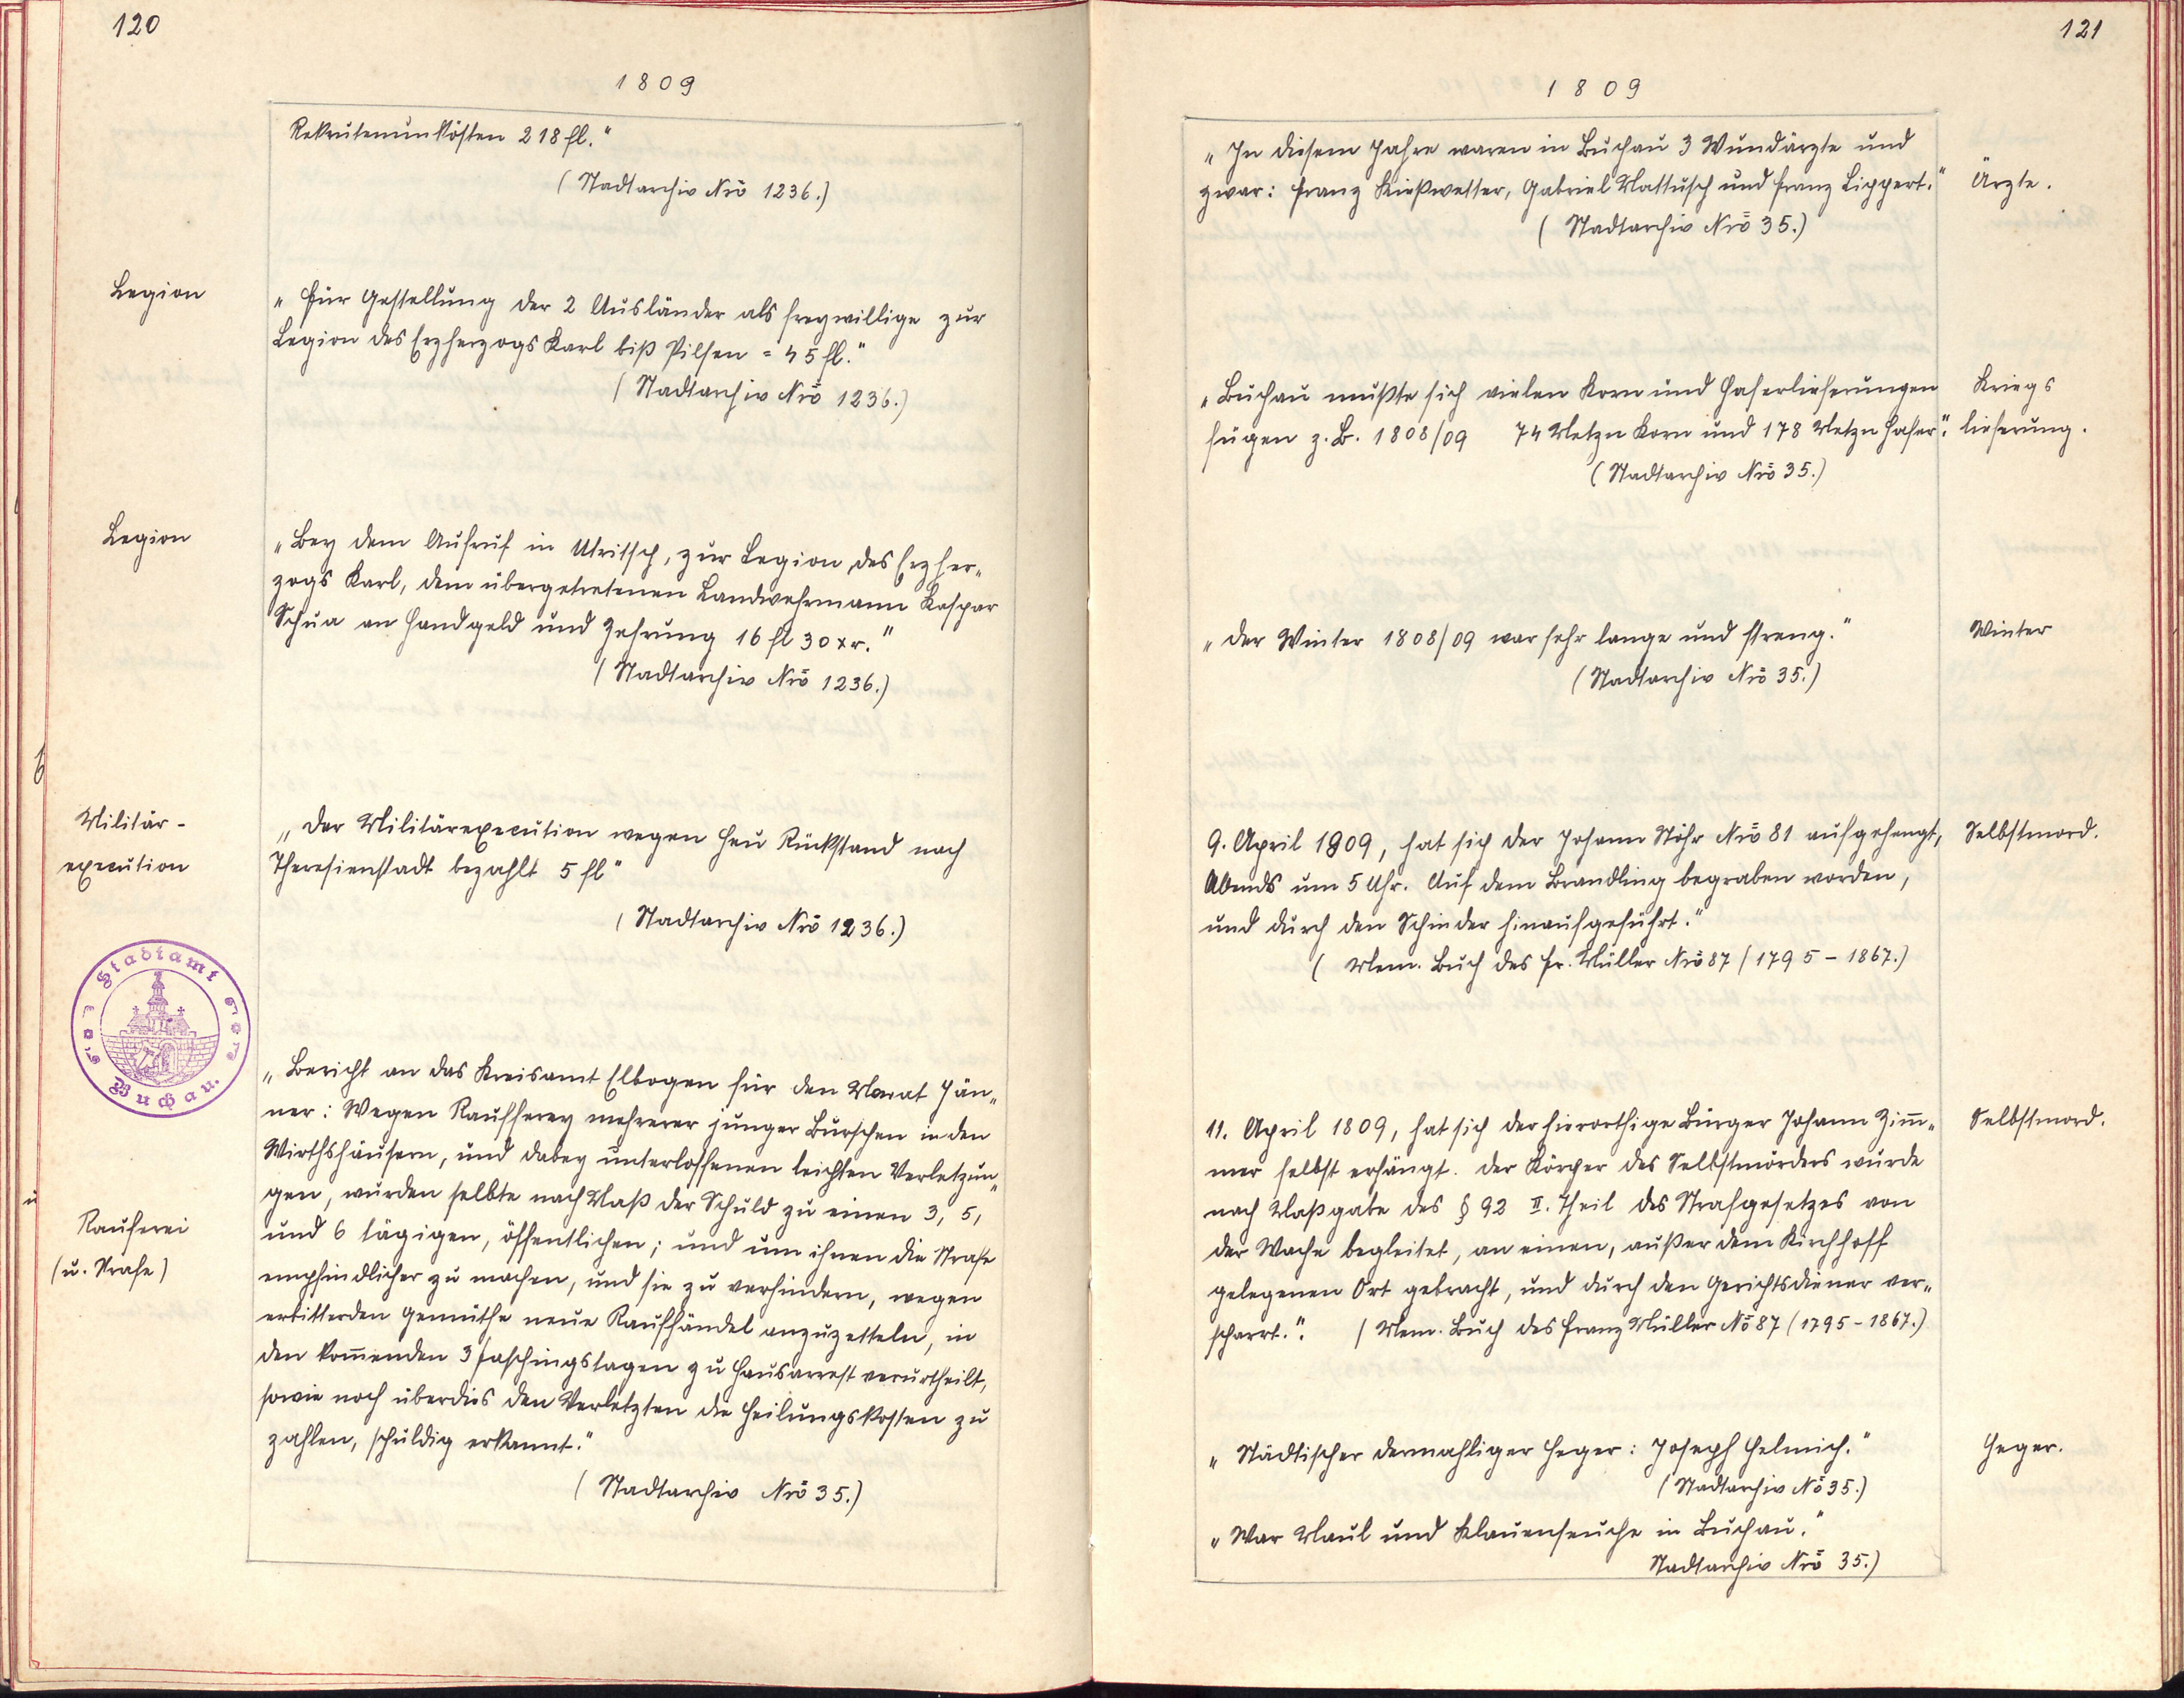 120
1809
Rekrutenunkösten 218 fl."
(Stadtarchiv Nrō 1236.)
Legion
"Für Gestellung der 2 Ausländer als freywillige zur
Legion des Erzherzogs Karl biß Pilsen = 45 fl."
(Stadtarchiv Nrō 1236.)
Legion
"Bey dem Aufruf in Utritsch, zur Legion des Erzher„
zogs Karl, dem übergetretenen Landwehrmann Kaspar
Schua an Handgeld und Zehrung 16 fl 30 xr."
(Stadtarchiv Nrō 1236.)
Militär-
execution
"Der Militärexecution wegen Heu Rückstand nach
Theresienstadt bezahlt 5 fl"
(Stadtarchiv Nrō 1236.)
Stadtamt
Buchau.
"Bericht an das Kreisamt Elbogen für den Monat Jän„
ner: Wegen Raufferey mehrerer junger Burschen in den
Wirthshäusern, und dabey unterloffenen leichten Verletzun„
gen, wurden selbte nach Maß der Schuld zu einen 3, 5,
und 6 tägigen, öffentlichen; und um ihnen die Strafe
empfindlicher zu machen, und sie zu verhindern, wegen
erbitterden Gemüthe neue Raufhändel anzuzetteln, in
den kom̄enden 3 Faschingstagen zu Hausarrest verurtheilt,
sowie noch überdies den Verletzten die Heilungskosten zu
zahlen, schuldig erkannt."
Rauferei
(u. Strafe)
(Stadtarchiv Nrō 35.)
121
1809
"In diesem Jahre waren in Buchau 3 Wundärzte und
zwar: Franz Kießwetter, Gabriel Mattusch und Franz Lippert."
Ärzte.
(Stadtarchiv Nrō 35.)
"Buchau mußte sich vielen Korn und Haferlieferungen
fügen z. B. 1808/09 74 Metzn Korn und 178 Metzn Hafer."
Kriegs
lieferung.
(Stadtarchiv Nrō 35.)
"Der Winter 1808/09 war sehr lange und streng."
Winter
(Stadtarchiv Nrō 35.)
9. April 1809, hat sich der Johann Stöhr Nrō 81 aufgehengt,
Selbstmord.
Abends um 5 Uhr. Auf dem Brandling begraben worden,
und durch den Schinder hinaufgeführt."
(Mem. Buch des Fr. Müller Nrō 87 (1795 - 1867.)
11. April 1809, hat sich der hierorthige Bürger Johann Zim̄„
Selbstmord.
mer selbst erhängt. Der Körper des Selbstmörders wurde
nach Maßgabe des § 92 II. Theil des Strafgesetzes von
der Wache begleitet, an einen, außer dem Kirchhoff
gelegenen Ort gebracht, und durch den Gerichtsdiener ver„
scharrt.". (Mem. Buch des Franz Müller Nō 87 (1795 - 1867.)
"Städtischer dermahliger Heger: Joseph Helmich."
Heger.
(Stadtarchiv Nō 35.)
"War Maul und Klauenseuche in Buchau."
Stadtarchiv Nrō 35.)